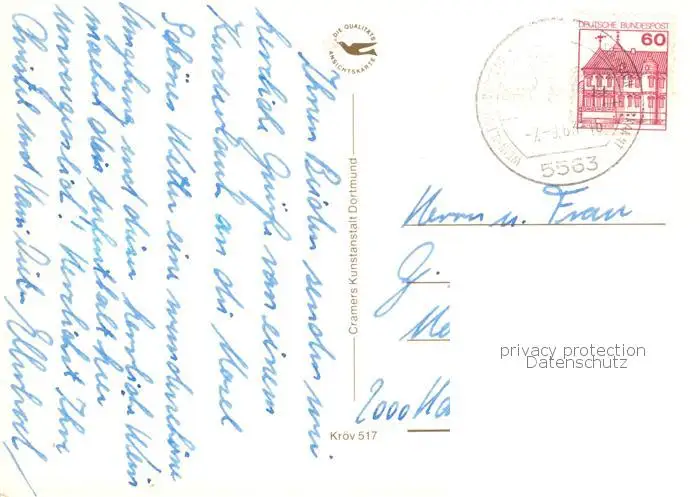 Ihnen Beiden senden wir
herzliche Grüße von einem
Kurzurlaub an der Mosel
Schönes Wetter eine wunderschöne
Umgebung und dieser herrliche Wein
macht den Aufenthalt hier
unvergesslich! Herzlichst Ihre
Christel und
DIE QUALITÄTS
ANSICHTSKARTE
Cramers Kunstanstalt Dortmund
Kröv 517
DEUTSCHE BUNDESPOST
60
5563
Herrn u. Frau
G.
2000 Ha
privacy protection
Datenschutz